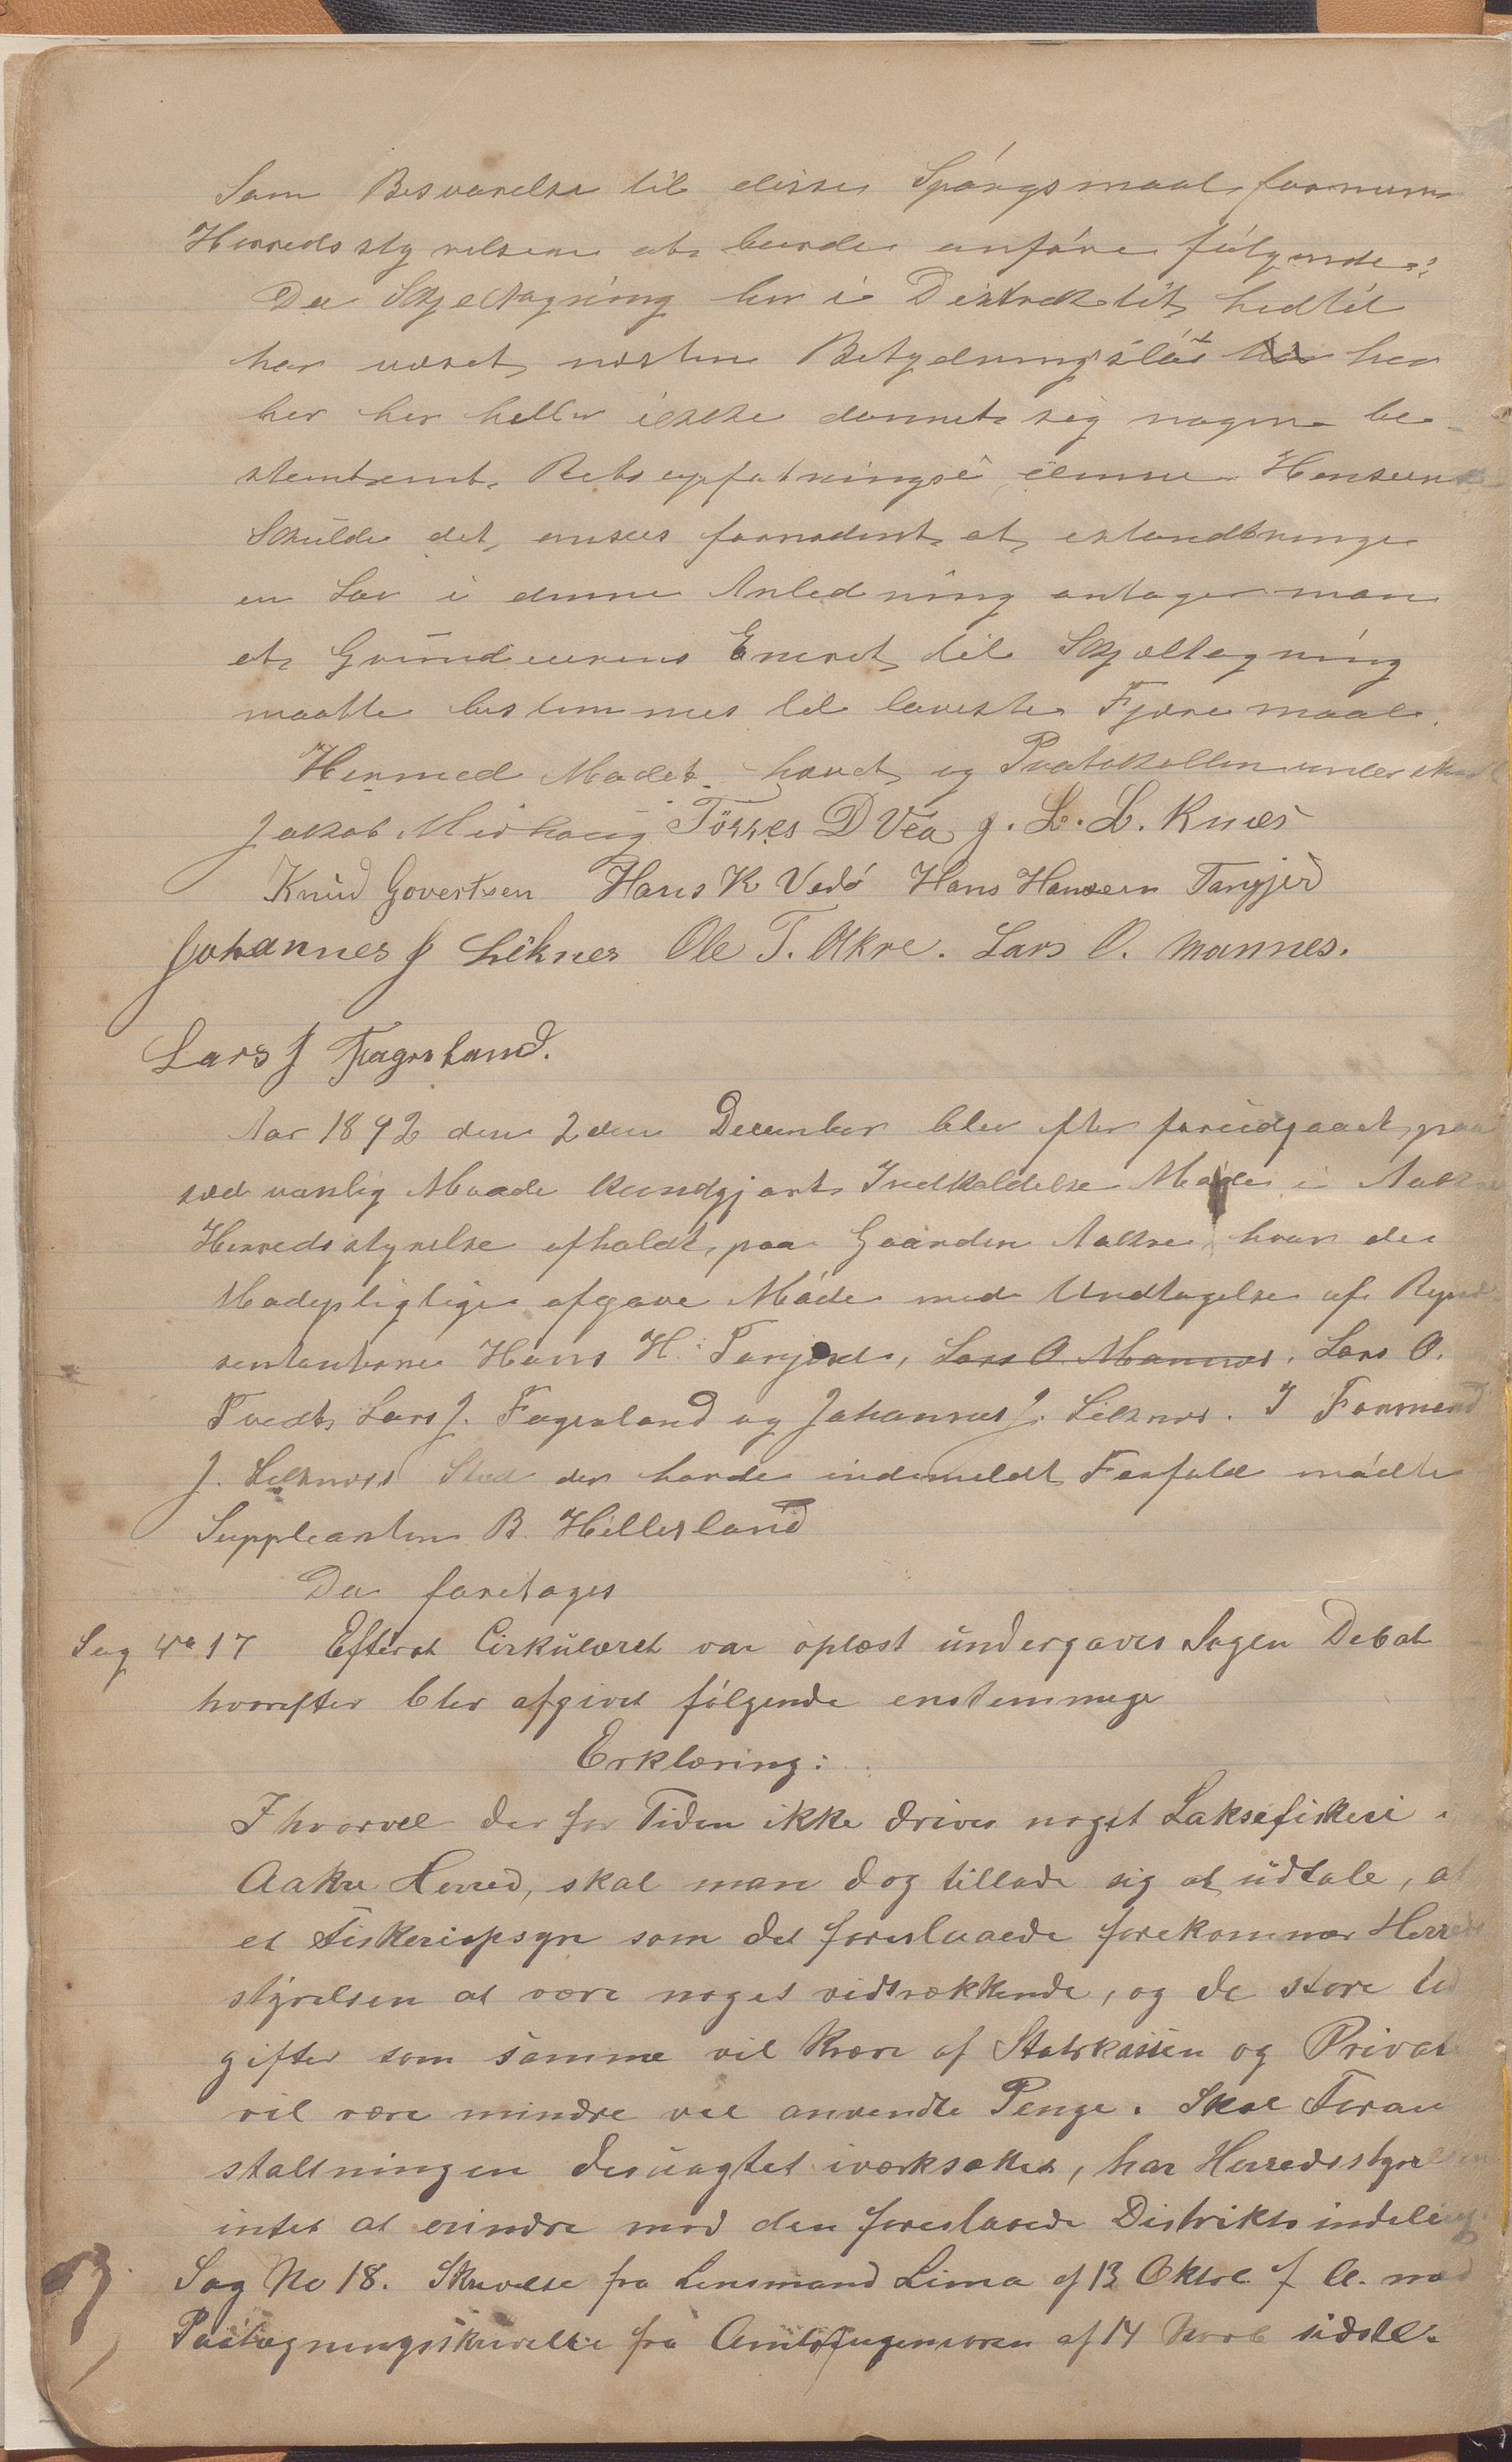 Som Besvarelse til disse Spörgsmaal formener
Herredsstyrelsen at burde anföre fölgende:
Da Skjeltagning her i Distriktet hidtil
har været næsten Betydningslöst har
her har heller ikke dannet sig nogen be-
stemt Retsopfatning i denne Henseende
Skulde det ansees fornødent at istandbringe
en Lov i denne Anledning antager man
at Grundeierens Eneret til Skjæltagning
maatte bestemmes til laveste Fjæremaal.
Hermed Mødet hævet og Protokollen underskrevet
Jakob Midhaug Törres D Vea J. L. L. Knæs
Knud Govertsen Hans K Vedö Hans Hansen Tangjerd
Johannes J Liknes Ole T. Akre. Lars O. Mannes.
Lars J Fagerland.
Aar 1892 den 2den December blev efter forudgaaet paa
sædvanlig Maade kundgjort Indkaldelse Möde i Aakre
Herredsstyrelse afholdt paa Gaarden Aakre hvor de
Mødepligtige afgave Möde med Undtagelse af Repræ-
sentanterne Hans H. Tangjerd, Lars O Mannes. Lars O.
Tvedt Lars J. Fagerland og Johannes J. Liknes. I Formand
J. Liknes Sted der havde indmeldt Forfald mödte
Suppleanten B. Hillesland
Da foretoges
Sag No 17 Efterat Cirkulæret var oplæst undergaves Sagen Debat
hvorefter blev afgivet fölgende enstemmige
Erklæring:
Ihvorvel der for Tiden ikke drives noget Laksefiskeri i
Aakre Herred, skal man dog tillade sig at udtale, at
et Fiskeriopsyn som det foreslaaede forekommer Herreds
styrelsen at være noget vidtrækkende, og de store Ud
gifter som samme vil kræve af Statskassen og Private
vil være mindre vel anvendte Penge. Skal Foran
staltningen desuagtet iværksættes, har Herredsstyrelsen
intet at erindre mod den foreslaaede Distriktsindeling
Sag No 18. Skrivelse fra Lensmand Lima af 13 Oktbr f. A. med
Paategningsskrivelse fra Amtsingeniøren af 14 Novb sidstl.